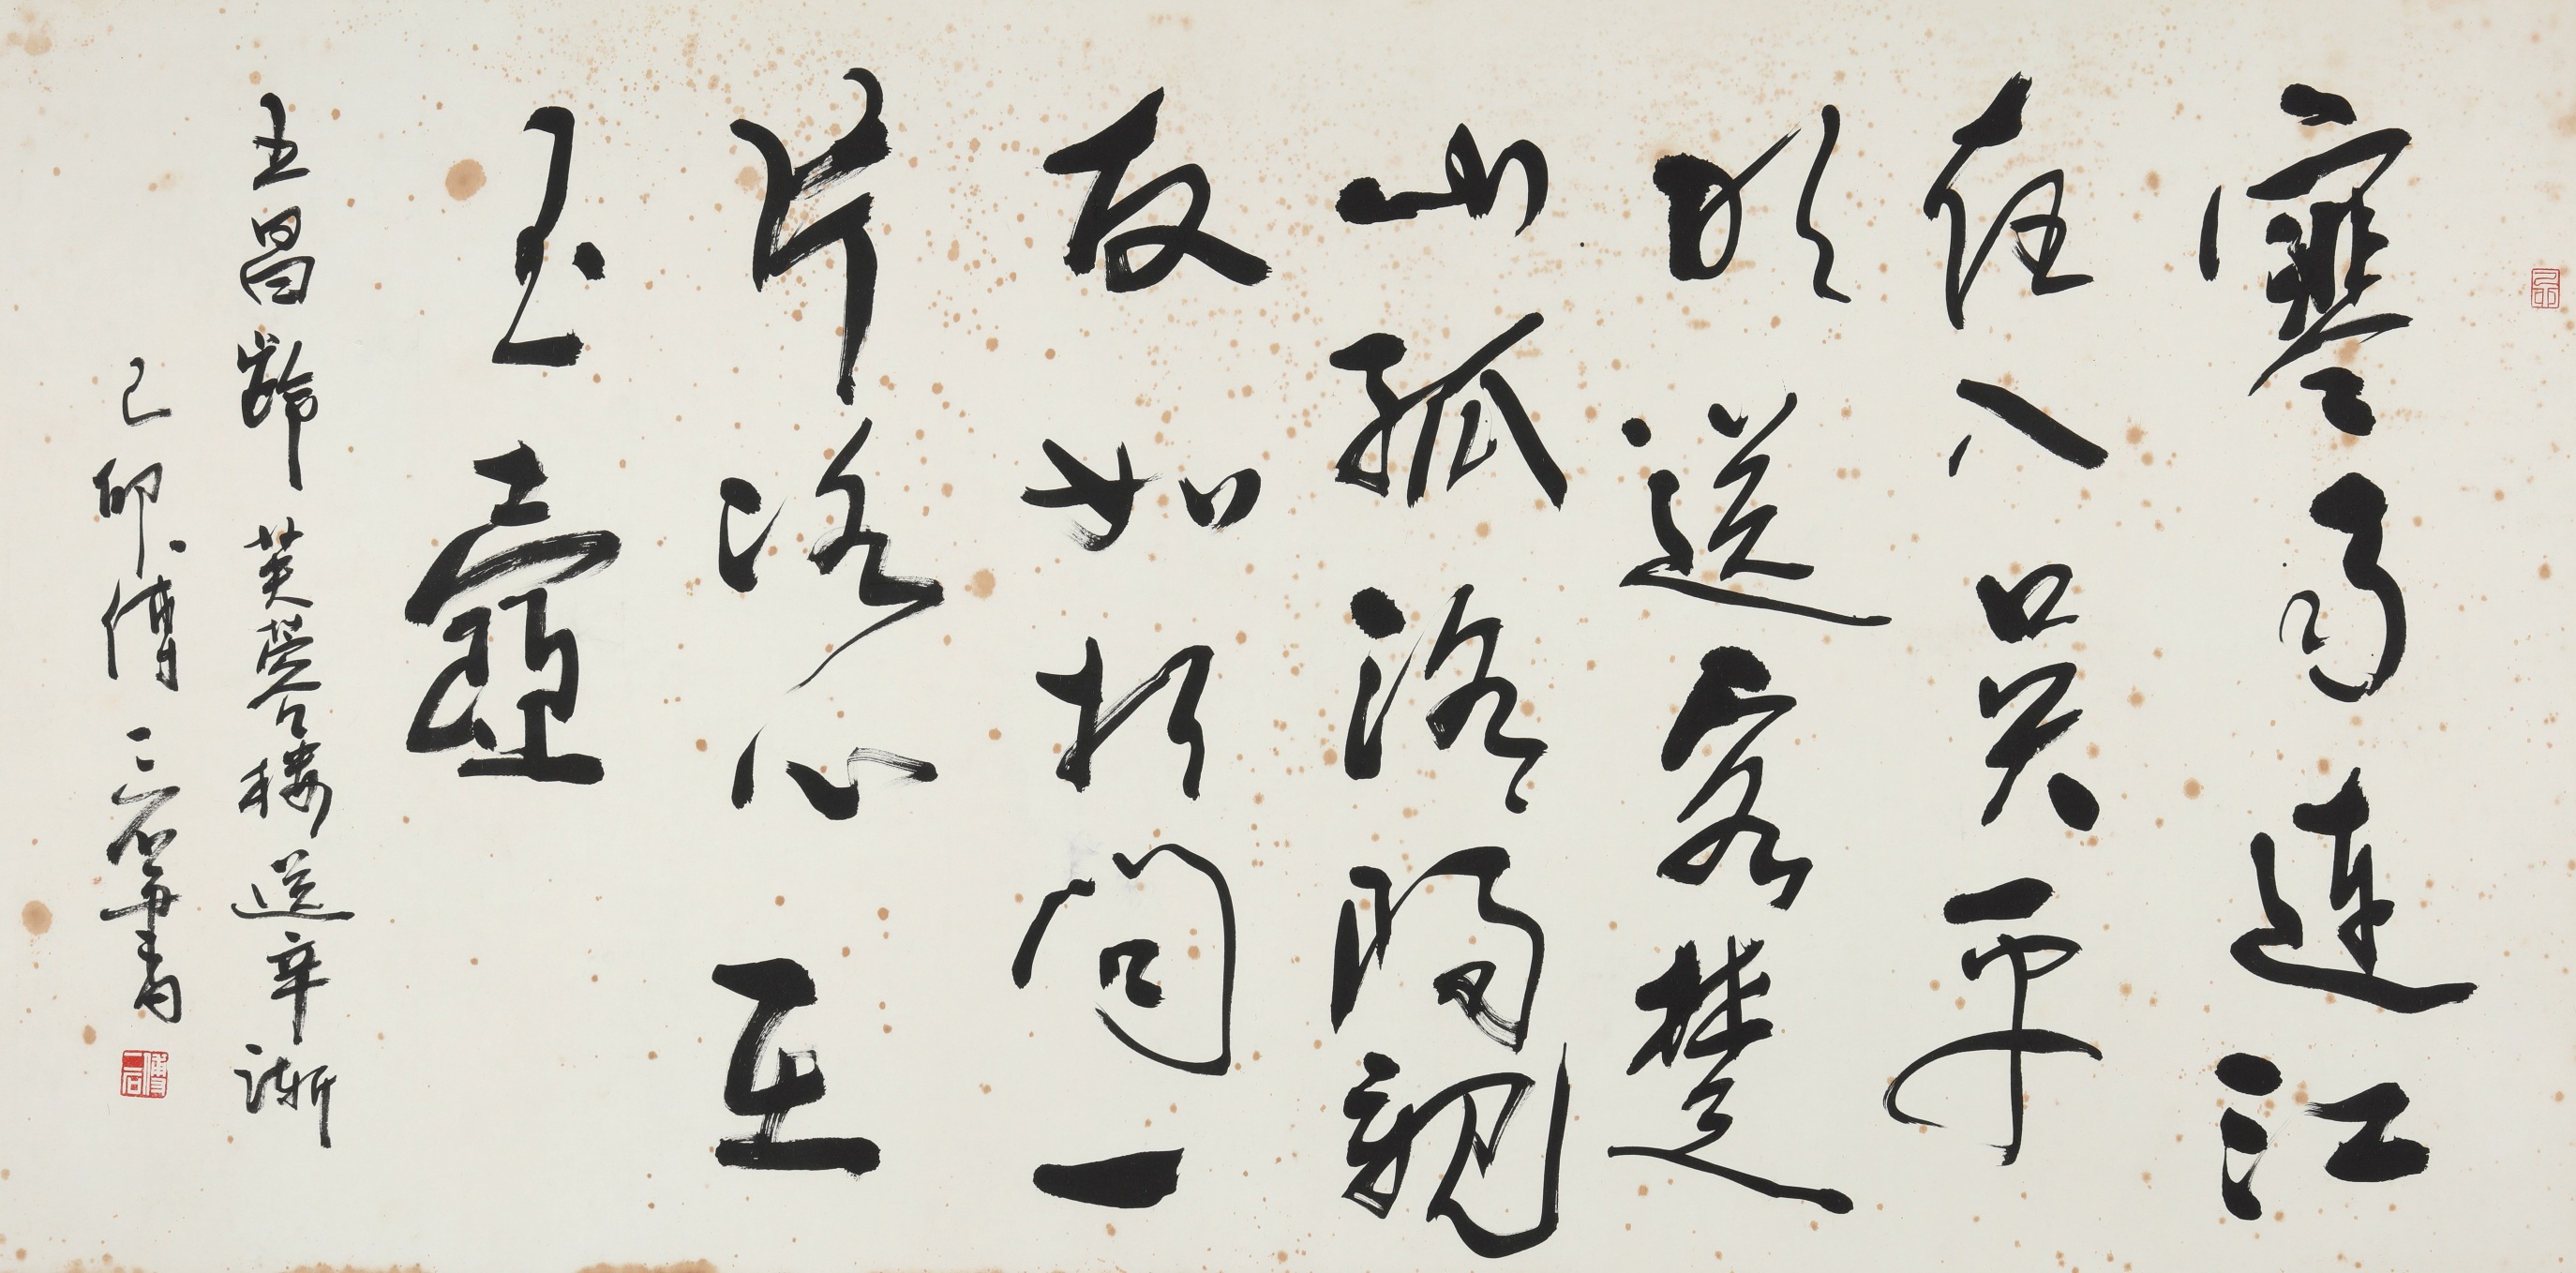 寒雨連江
夜入吳平
明送客楚
山孤洛陽親
友如相問一
片冰心在
玉壺
王昌齡芙蓉樓送辛漸
己卯傅二石書
傅二石